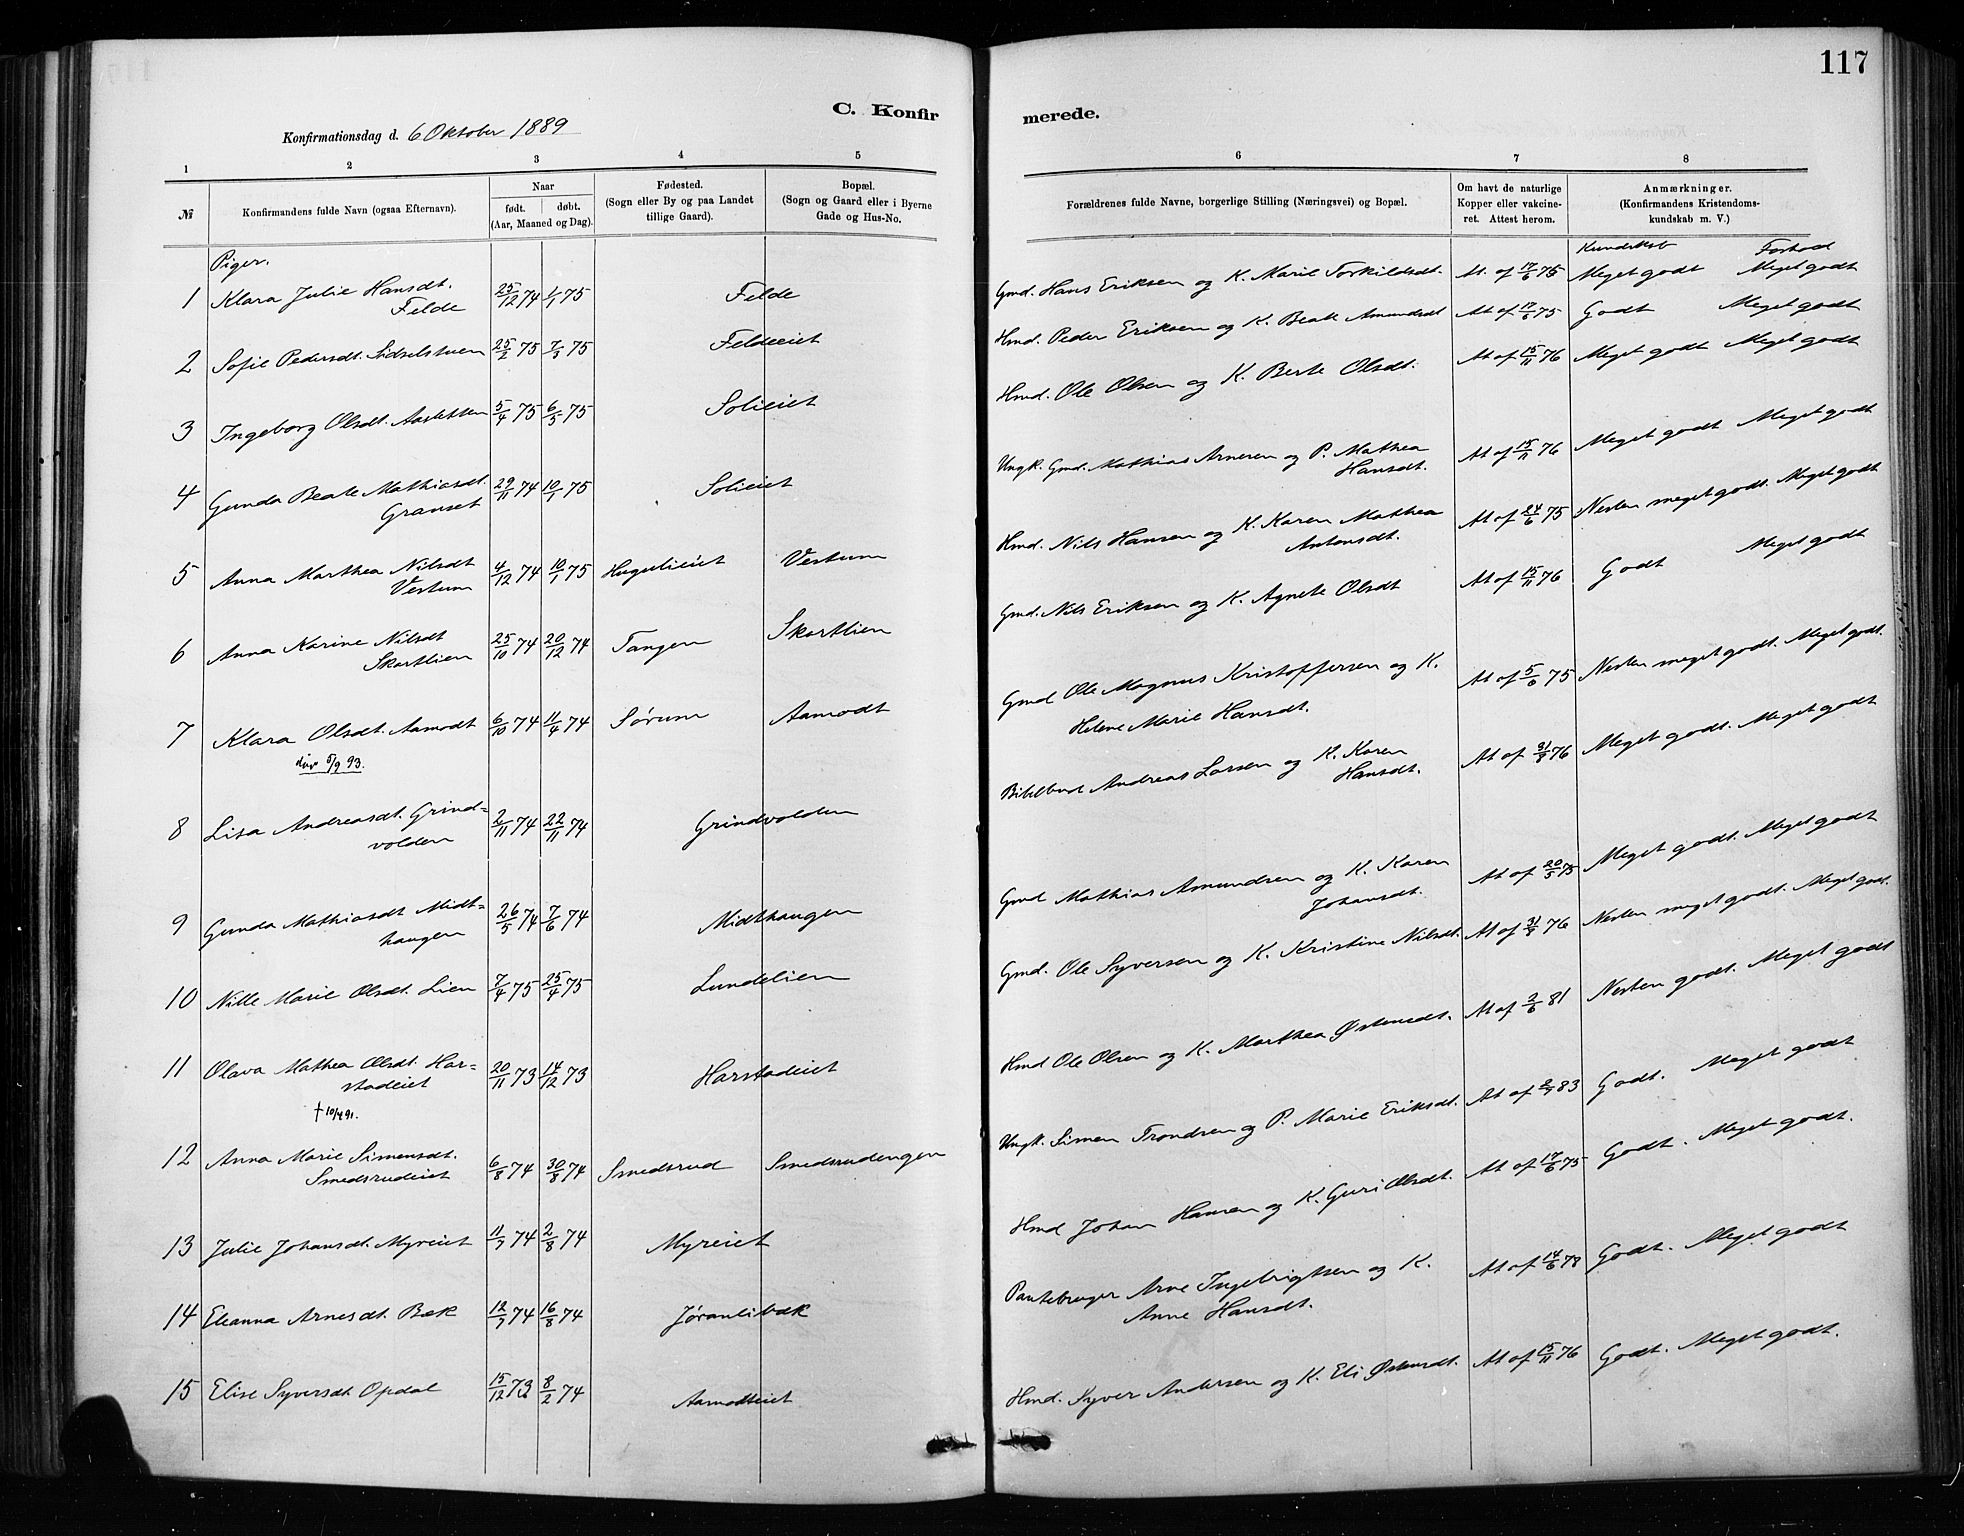 117
C. Konfir
merede.
Konfirmationsdag d. 6 Oktober 1889
1 2 3 4 5
№
Konfirmandens fulde Navn (ogsaa Efternavn).
Naar
født. døbt.
(Aar, Maaned og Dag).
Fødested.
(Sogn eller By og paa Landet
tillige Gaard).
Bopæl.
(Sogn og Gaard eller i Byerne
Gade og Hus-No.
6 7 8
Forældrenes fulde Navne, borgerlige Stilling (Næringsvei) og Bopæl.
Om havt de naturlige
Kopper eller vakcine-
ret. Attest herom.
Anmærkninger.
(Konfirmandens Kristendoms-
kundskab m. V.)
Piger.
1 Klara Julie Hansdt. 25/12 74 1/1 75 Felde
Felde
2 Sofie Pedersdt. Sidselstuen 25/2 75 7/3 75 Feldeeiet
3 Ingeborg Olsdt. Aasletten 5/4 75 6/5 75 Solieiet
4 Gunda Beate Mathiasdt. 29/11 74 10/1 75 Solieiet
Granset
5 Anna Marthea Nilsdt 4/12 74 10/1 75 Hugulieiet Vestum
Vestum
6 Anna Karine Nilsdt 25/10 74 20/12 74 Tangen Skartlien
Skartlien
7 Klara Olsdt. Aamodt 6/10 74 11/4 74 Sørum Aamodt
div 5/9 93.
8 Lisa Andreasdt. Grind= 2/11 74 22/11 74 Grindvolden
volden
9 Gunda Mathiasdt Midt= 26/5 74 7/6 74 Midthaugen
haugen
10 Nille Marie Olsdt. Lien 7/4 75 25/4 75 Lundelien
11 Olava Mathea Olsdt. Har= 20/11 73 14/12 73 Harstadeiet
stadeiet
† 10/4 91.
12 Anna Marie Simensdt. 6/8 74 30/8 74 Smedsrud Smedsrudengen
Smedsrudeiet
13 Julie Johansdt. Myreiet 11/7 74 2/8 74 Myreiet
14 Eleanna Arnesdt. Bæk 12/7 74 16/8 74 Jøranlibæk
15 Elise Syversdt. Opdal 15/12 73 8/2 74 Aamodteiet
Kundskab Forhold
Gmd. Hans Eriksen og K. Marie Torkildsdt. At. af 17/6 75 Meget godt Meget godt
Hmd. Peder Eriksen og K. Beate Amundsdt At af 17/6 75 Godt Meget godt
Hmd. Ole Olsen og K. Berte Olsdt. At af 15/11 76 Meget godt Meget godt
Ungk. Gmd. Mathias Arnesen og P. Mathea At af 15/11 76 Meget godt Meget godt
Hansdt.
Hmd. Nils Hansen og K. Karen Mathea At af 24/6 75 Nesten meget godt. Meget godt
Antonsdt.
Gmd. Nils Eriksen og K. Agnete Olsdt At af 15/11 76 Godt Meget godt
Gmd Ole Magnus Kristoffersen og K. At af 5/6 75 Nesten meget godt. Meget godt.
Helene Marie Hansdt.
Bibelbud Andreas Larsen og K. Karen At af 31/8 76 Meget godt. Meget godt
Hansdt.
Gmd Mathias Amundsen og K. Karen At af 20/5 75 Meget godt. Meget godt
Johansdt.
Gmd. Ole Syversen og K. Kristine Nilsdt. At af 31/8 76 Nesten meget godt. Meget godt.
Hmd Ole Olsen og K. Marthea Østensdt. At af 2/6 81 Nesten godt. Meget godt
Ungk. Simen Trondsen og P. Marie Eriksdt. At af 2/7 83 Godt. Meget godt
Hmd Johan Hansen og K. Guri Olsdt. At af 17/6 75 Godt. Meget godt.
Pantebruger Arne Ingebrigtsen og K. At af 14/6 78 Godt. Meget godt
Anne Hansdt.
Hmd. Syver Andersen og K. Eli Østensdt. At af 15/11 76 Godt. Meget godt.